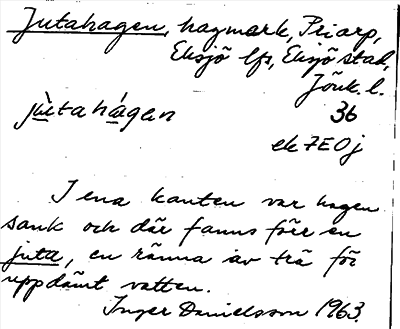 Jutahagen, hagmark, Priarp,
Eksjö lfs, Eksjö stad,
Jönk. l.
jùtahágen 36
ek 7E0j
I ena kanten var hagen
sank och där fanns förr en
juta, en ränna av trä för
uppdämt vatten.
Inger Danielsson 1963.